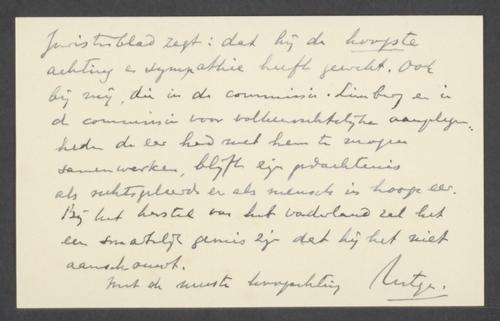 Juristenblad zegt: dat hij de hoogste
achting en sympathie heeft gewekt. Ook
bij mij, die in de commissie-Limburg en in
de commissie voor volkenrechtelijke aangelegen-
heden de eer had met hem te mogen
samenwerken, blijft zijn gedachtenis
als rechtsgeleerde en als mensch in hooge eer.
Bij het herstel van het vaderland zal het
een smartelijk gemis zijn dat hij het niet
aanschouwt.
Met de meeste hoogachting
Rutgers.